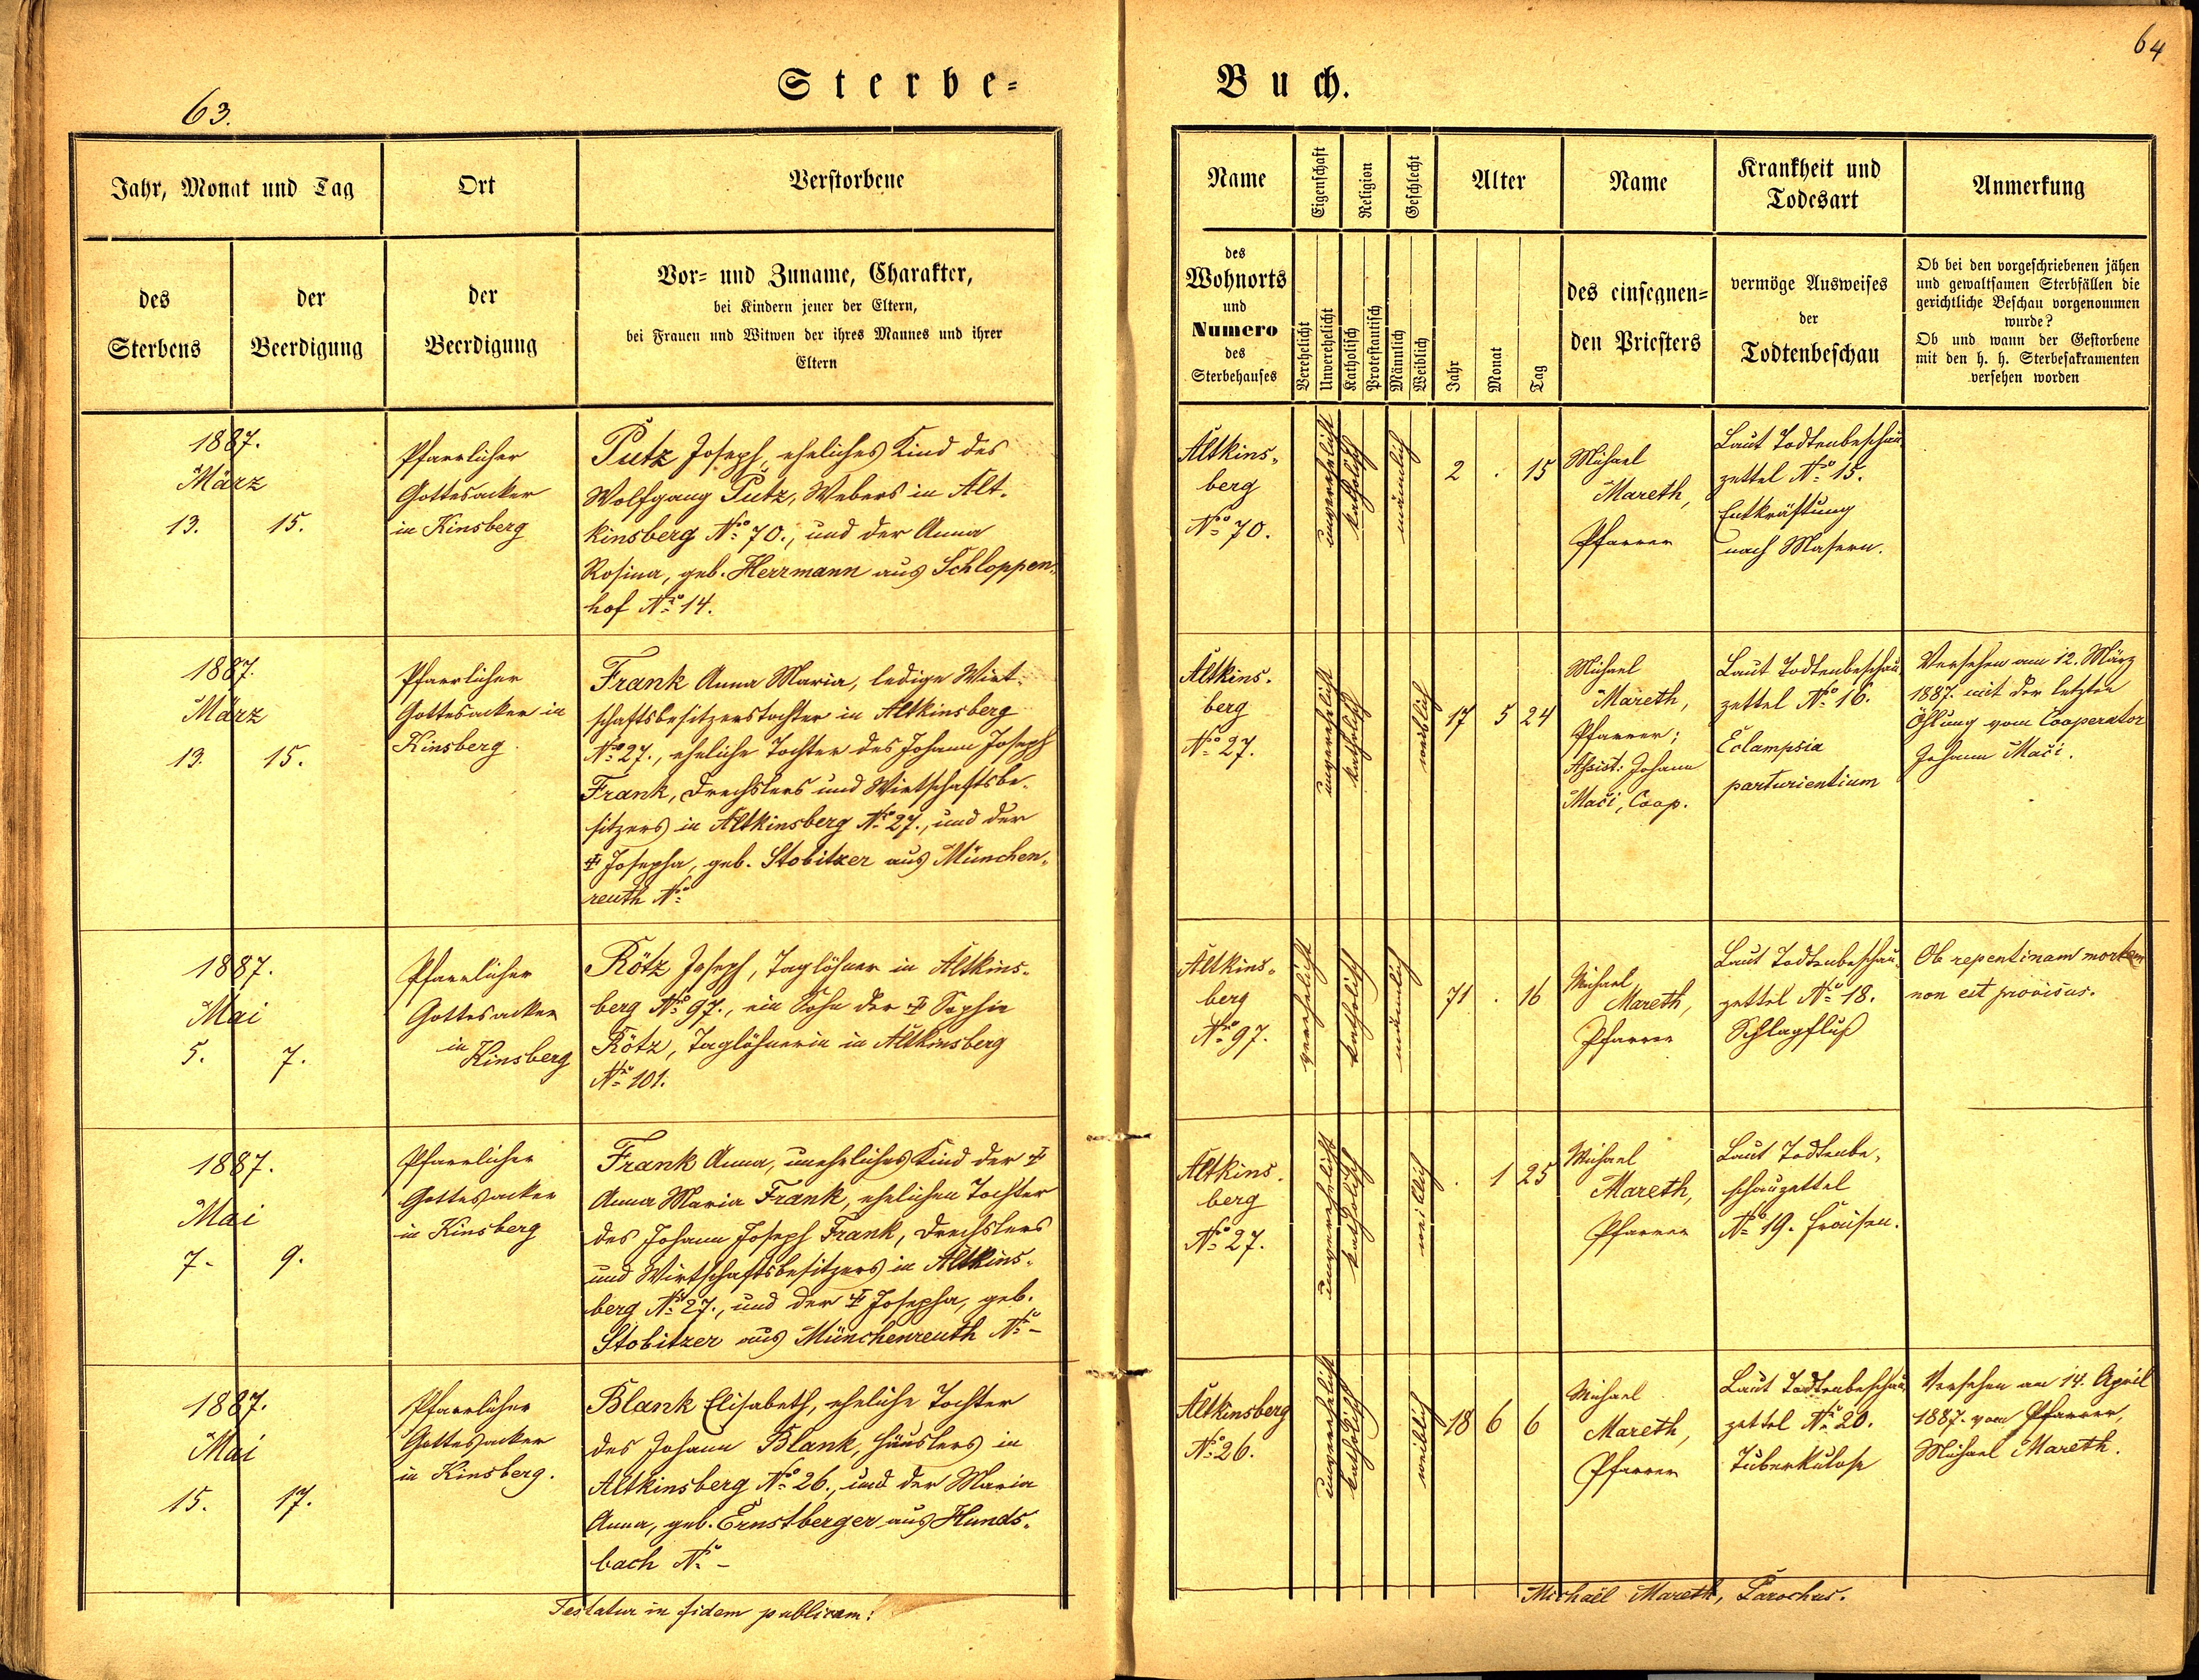 63.
Sterbe=
Jahr, Monat und Tag
Ort
Verstorbene
des
Sterbens
der
Beerdigung
der
Beerdigung
Vor= und Zuname, Charakter,
bei Kindern jener der Eltern,
bei Frauen und Witwen der ihres Mannes und ihrer
Eltern
1887.
März
13. 15.
Pfarrlicher
Gottesacker
in Kinsberg
Putz Joseph, eheliches Kind des
Wolfgang Putz, Webers in Alt-
kinsberg No 70., und der Anna
Rosina, geb. Herrmann aus Schloppen-
hof No 14.
1887.
März
13. 15.
Pfarrlicher
Gottesacker in
Kinsberg
Frank Anna Maria, ledige Wirt-
schaftsbesitzerstochter in Altkinsberg
No 27., eheliche Tochter des Johann Joseph
Frank, Drechslers und Wirtschaftsbe-
sitzers in Altkinsberg No 27., und der
‡ Josepha, geb. Stobitzer aus München-
reuth No
1887.
Mai
5. 7.
Pfarrlicher
Gottesacker
in
Kinsberg
Rötz Joseph, Taglöhner in Altkins-
berg No 97., ein Sohn der ‡ Sophie
Rötz, Taglöhnerin in Altkinsberg
No 101.
1887.
Mai
7. 9.
Pfarrlicher
Gottesacker
in Kinsberg
Frank Anna, uneheliches Kind der ‡
Anna Maria Frank, ehelichen Tochter
des Johann Joseph Frank, Drechslers
und Wirtschaftsbesitzers in Altkins-
berg No 27., und der ‡ Josepha, geb.
Stobitzer aus Münchenreuth No –
1887.
Mai
15. 17.
Pfarrlicher
Gottesacker
in Kinsberg.
Blank Elisabeth, eheliche Tochter
des Johann Blank, Häuslers in
Altkinsberg No 26., und der Maria
Anna, geb. Ernstberger aus Hunds-
bach No –
Testatur in fidem publicam:
64
Buch.
Name
Eigenschaft
Religion
Geschlecht
Alter
Name
Krankheit und
Todesart
Anmerkung
des
Wohnorts
und
Numero
des
Sterbehauses
Verehelicht
Unverehelicht
Katholisch
Protestantisch
Männlich
Weiblich
Jahr
Monat
Tag
des einsegnen=
den Priesters
vermöge Ausweises
der
Todtenbeschau
Ob bei den vorgeschriebenen jähen
und gewaltsamen Sterbfällen die
gerichtliche Beschau vorgenommen
wurde?
Ob und wann der Gestorbene
mit den h. h. Sterbesakramenten
versehen worden
Altkins-
berg
No 70.
unverehelicht
katholisch
männlich
2 . 15
Michael
Mareth,
Pfarrer
Laut Todtenbeschau
zettel No 15.
Entkräftung
nach Masern.
Altkins-
berg
No 27.
unverehelicht
katholisch
weiblich
17 5 24
Michael
Mareth,
Pfarrer;
Assist: Johann
Mači, Coop.
Laut Todtenbeschau
zettel No 16.
Eclampsia
parturientium
Versehen am 12. März
1887. mit der letzten
Öhlung vom Cooperator
Johann Mači.
Altkins-
berg
No 97.
verehelicht
katholisch
männlich
71 . 16
Michael
Mareth,
Pfarrer
Laut Todtenbeschau-
zettel No 18.
Schlagfluß
Ob repentinam mortem
non est provisus.
Altkins-
berg
No 27.
unverehelicht
katholisch
weiblich
. 1 25
Michael
Mareth,
Pfarrer
Laut Todtenbe-
schauzettel
No 19. Fraisen.
Altkinsberg
No 26.
unverehelicht
katholisch
weiblich
18 6 6
Michael
Mareth,
Pfarrer
Laut Todtenbeschau
zettel No 20.
Tuberkulose
Versehen am 14. April
1887. vom Pfarrer,
Michael Mareth.
Michaël Mareth, Parochus.